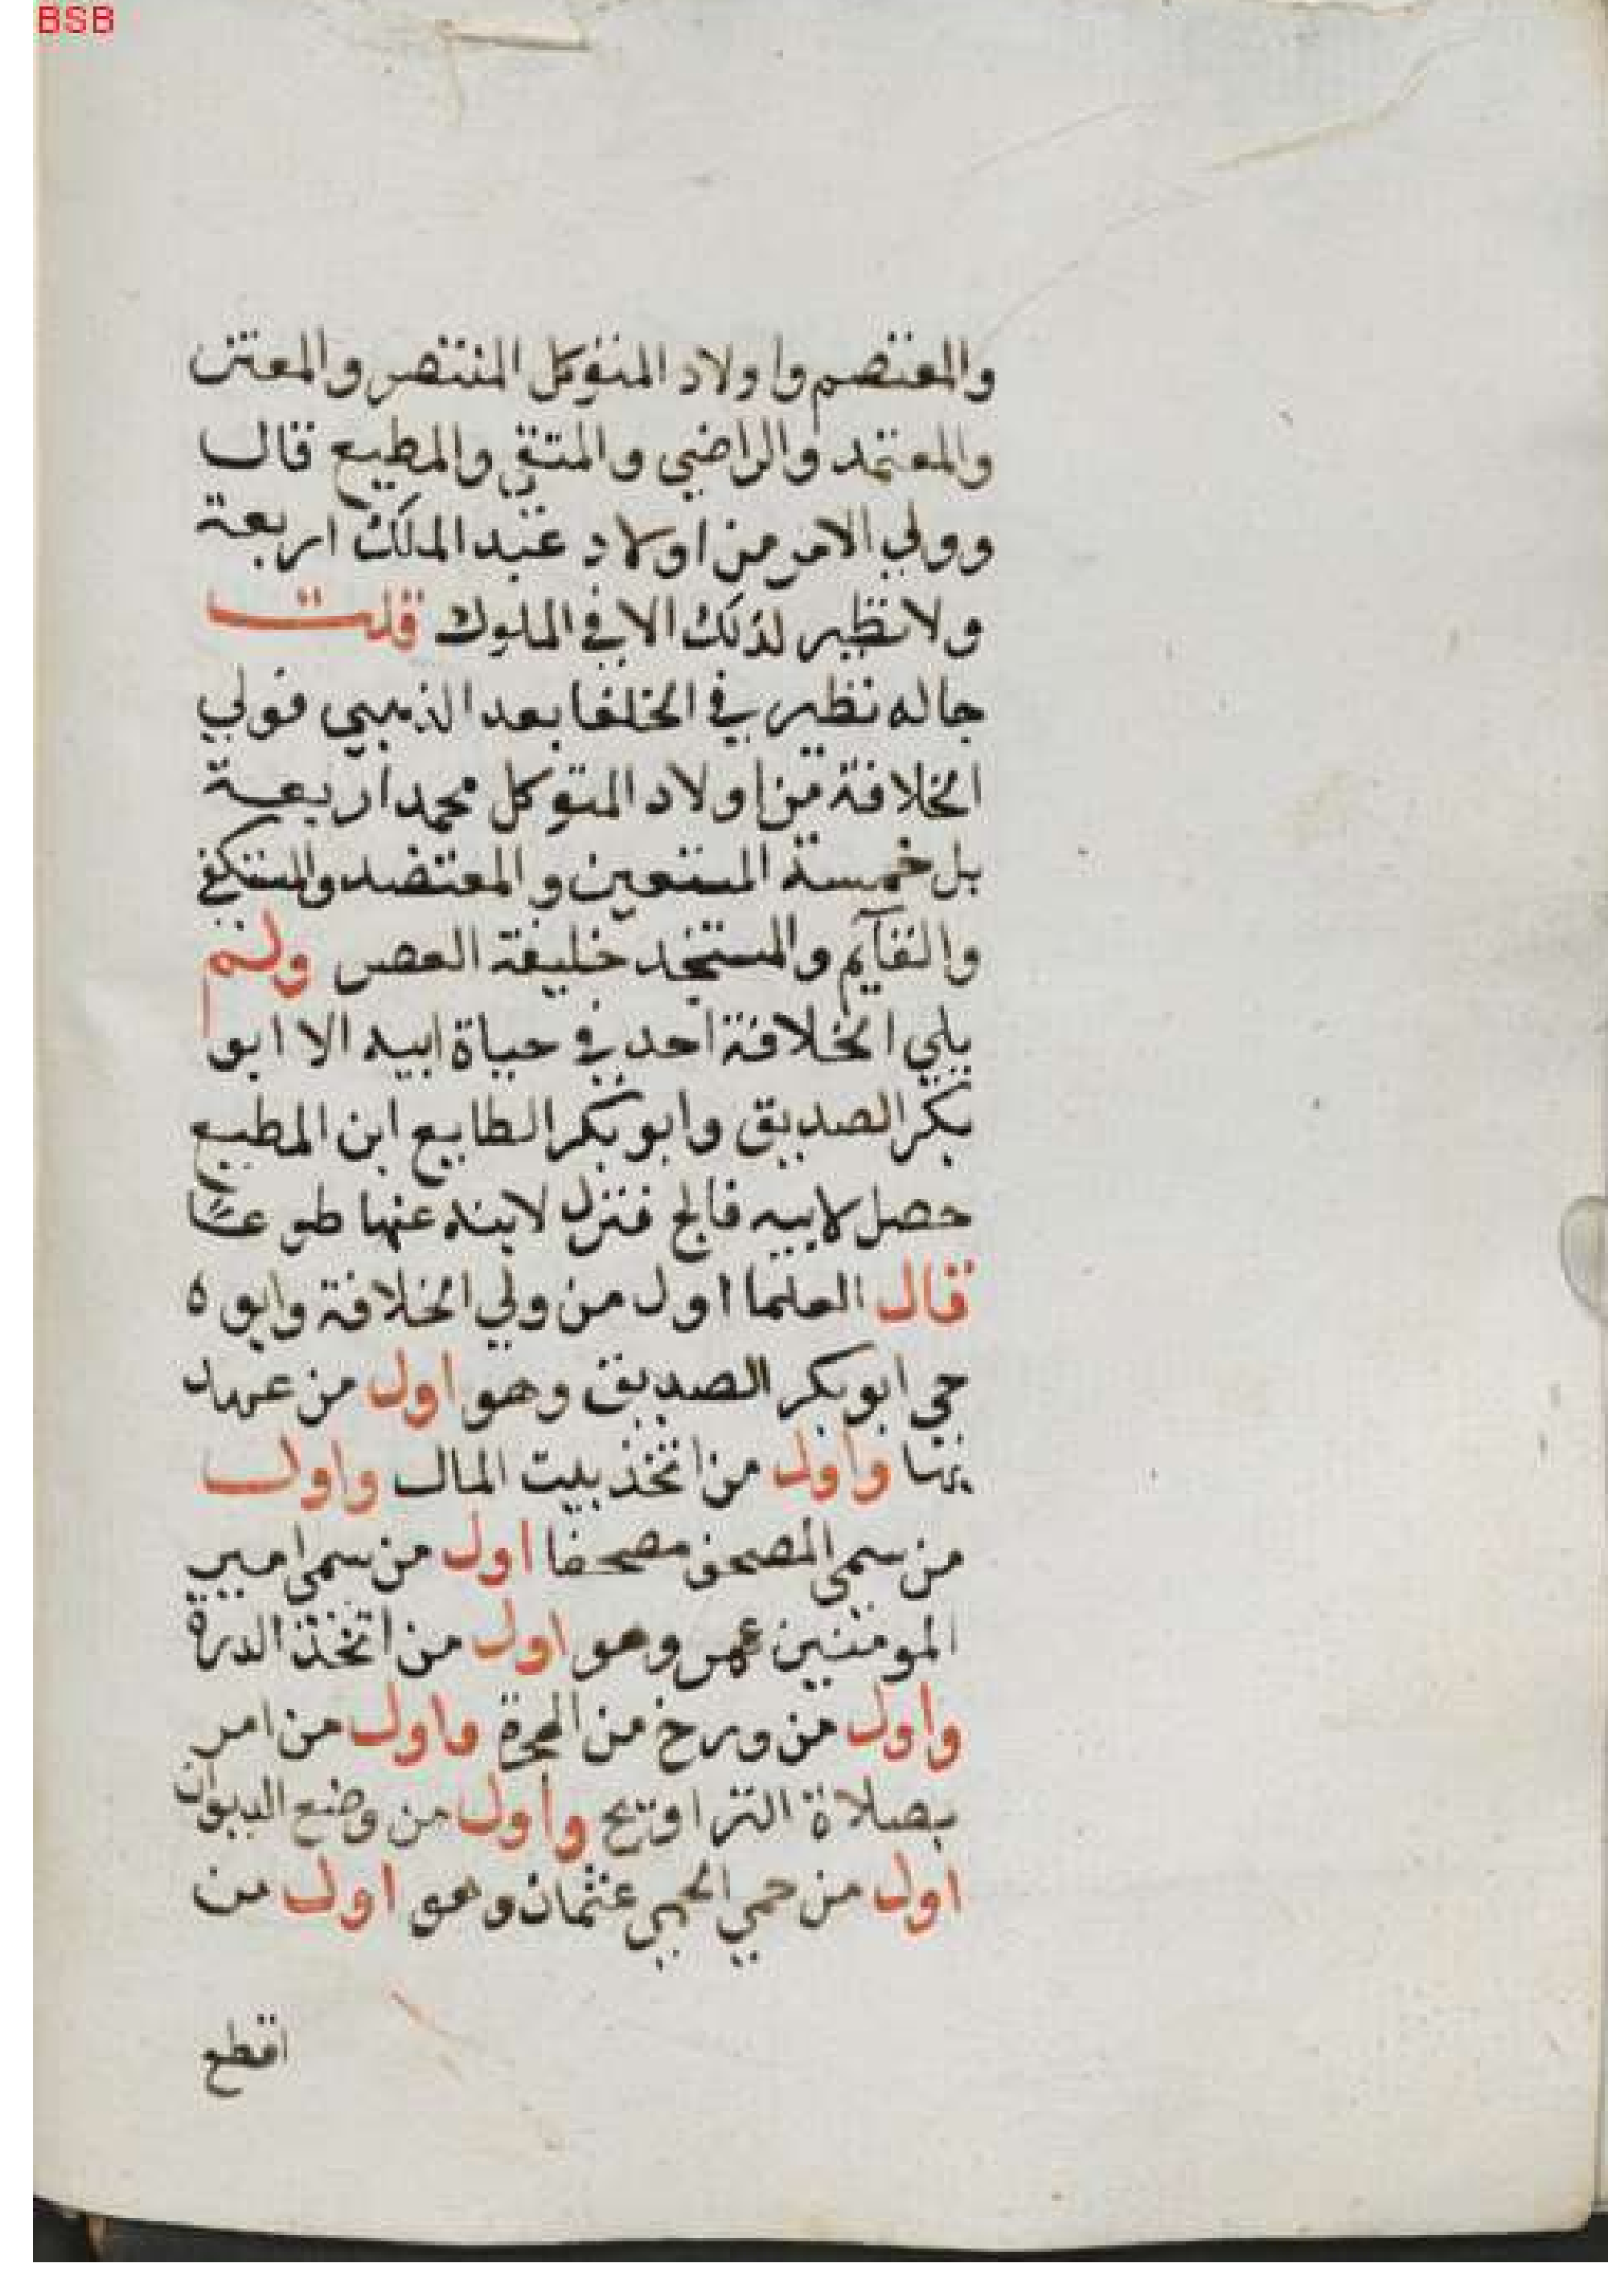 BSB
والمعتصم واولاد المتوكل المنتصر والمعتز
والمعتمد والراضي والمتقي والمطيع قال
وولي الامر من اولاد عبد الملك اربعة
ولا نظير لذلك الا في الملوك قلت
جا له نظير في الخلفا بعد الذهبي فولي
الخلافة من اولاد المتوكل محمد اربعة
بل خمسة المستعين والمعتضد والمستكفي
والقآيم والمستنجد خليفة العصر ولم
يلي الخلافة احد في حياة ابيه الا ابو
بكر الصديق وابو بكر الطايع ابن المطيع
حصل لابيه فالج فنزل لابنه عنها طوعًا
قال العلما اول من ولي الخلافة وابوه
حي ابو بكر الصديق وهو اول من عهد
بها واول من اتخذ بيت المال واول
من سمى المصحف مصحفا اول من سمى امير
المومنين عمر وهو اول من اتخذ الدرة
واول من ورخ من الهجرة واول من امر
بصلاة التراويح واول من وضع الديوان
اول من حمي الحمي عثمان وهو اول من
اقطع